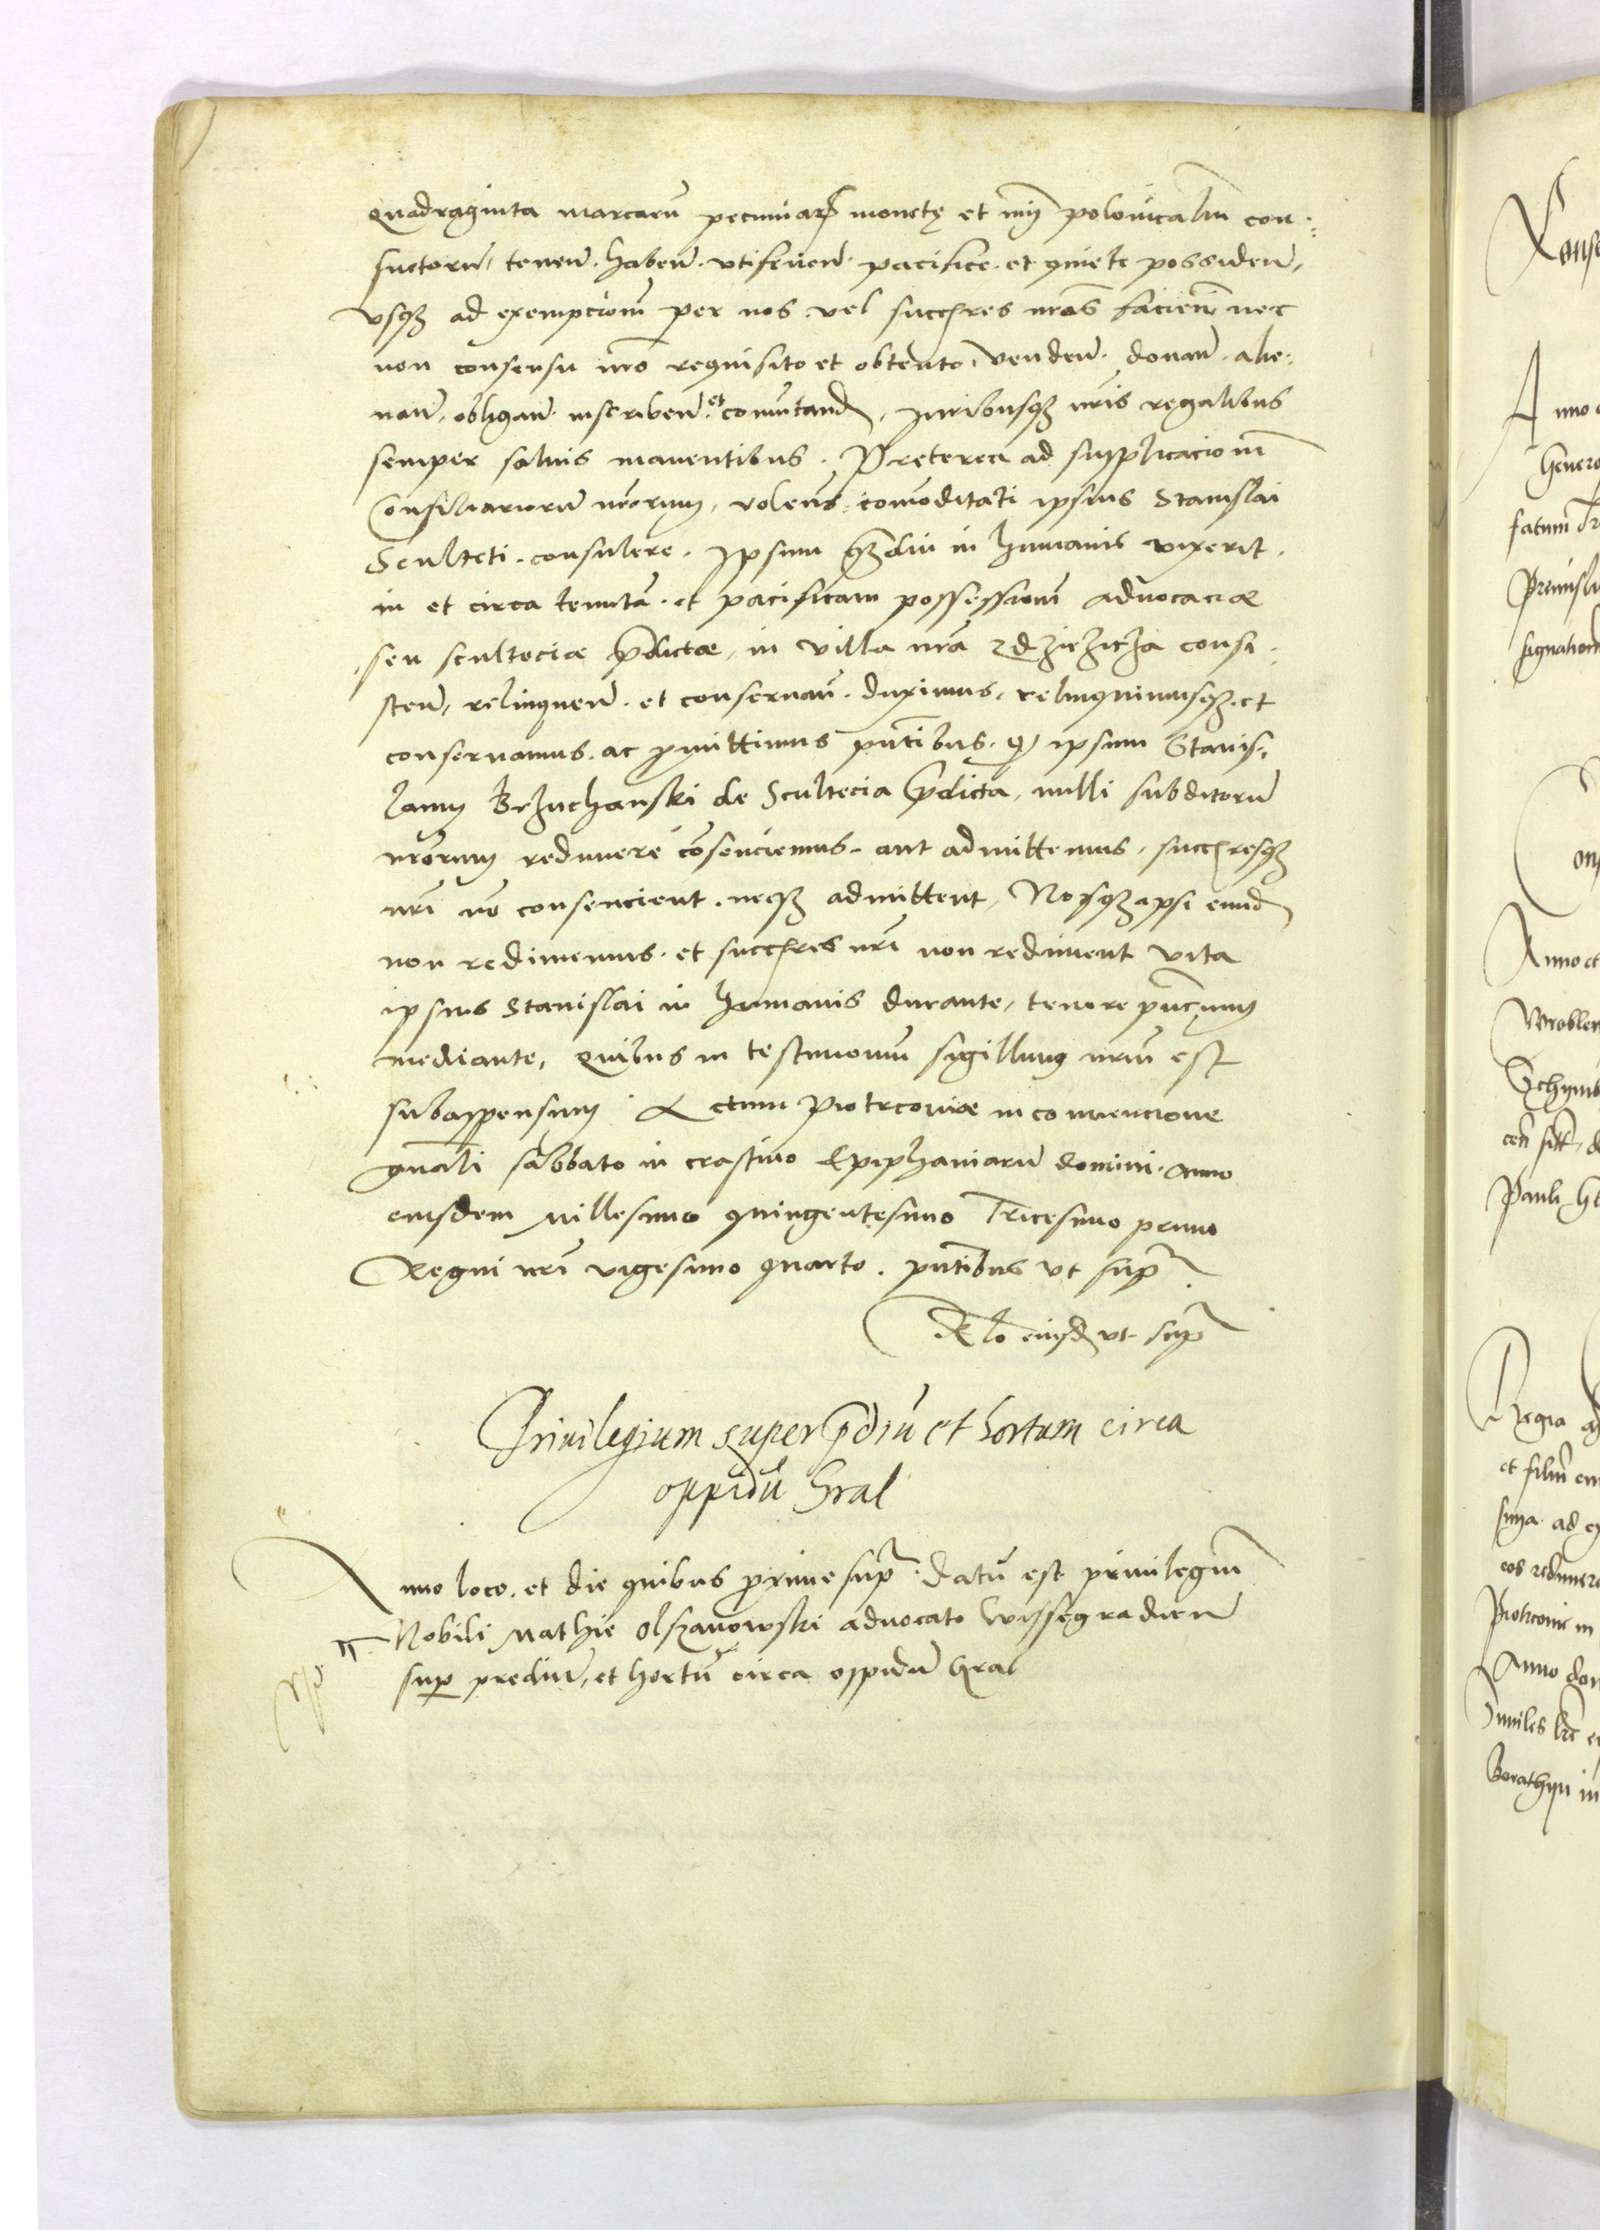 quadraginta marcarũ pecuniarꝫ monetę et nũi polonicaliũ con-
suetorũ, tenen̄. haben̄. vtifruen̄. pacifice. et quiete possiden̄,
vsqꝫ ad exempcionẽ per nos vel succẽres nrõs facien̄. nec
non consensu nrõ requisito et obtento, venden̄. donan̄. alie-
nan̄. obligan̄. inscriben̄. et comutand, Juribusqꝫ nrĩs regalibus
semper saluis manentibus. Preterea ad supplicacionẽ
Consiliariorũ nrõrum, volens comoditati ipsius Stanislai
Sculteti. consulere. Ipsum qꝫdiu in humanis vixerit.
in et circa tenutã. et pacificam possessionẽ aduocaciæ
seu scultetiæ p̄dictæ, in villa nrã Zdzieziecza consi-
sten̄, relinquen̄. et conseruan̄. duximus. relinquimusqꝫ. et
conseruamus. ac ꝓmittimus pñtibus. ꝙ ipsum Stanis-
laum Brzuchanski de Scultecia p̄dicta, nulli subditorũ
nrõrum redimere cõsenciemus. aut admittemus, succẽresqꝫ
nrĩ nõ consencient. neqꝫ admittent, Nosqꝫ ipsi eund
non redimemus. et succẽres nrĩ non rediment vita
ipsius Stanislai in humanis durante, tenore pñcium
mediante, Quibus in testimonium sigillum nrũm est
subappensum. Actum Piotrcouiæ in conuencione
gñali sabbato in crastino Epiphaniarũ domini. anno
eiusdem Millesimo quingentesimo Tricesimo primo
Regni nrĩ vigesimo quarto. pñtibus vt supra.
Relõ eiusd vt supra
Priuilegium super p̄diũ et hortum circa
oppidũ Gral
Anno loco. et die quibus proxime supra. datũ est priuilegiũ
Nobili Mathie Olszanowski aduocato Wissegradien̄
super prediũ, et hortũ circa oppidũ Gral